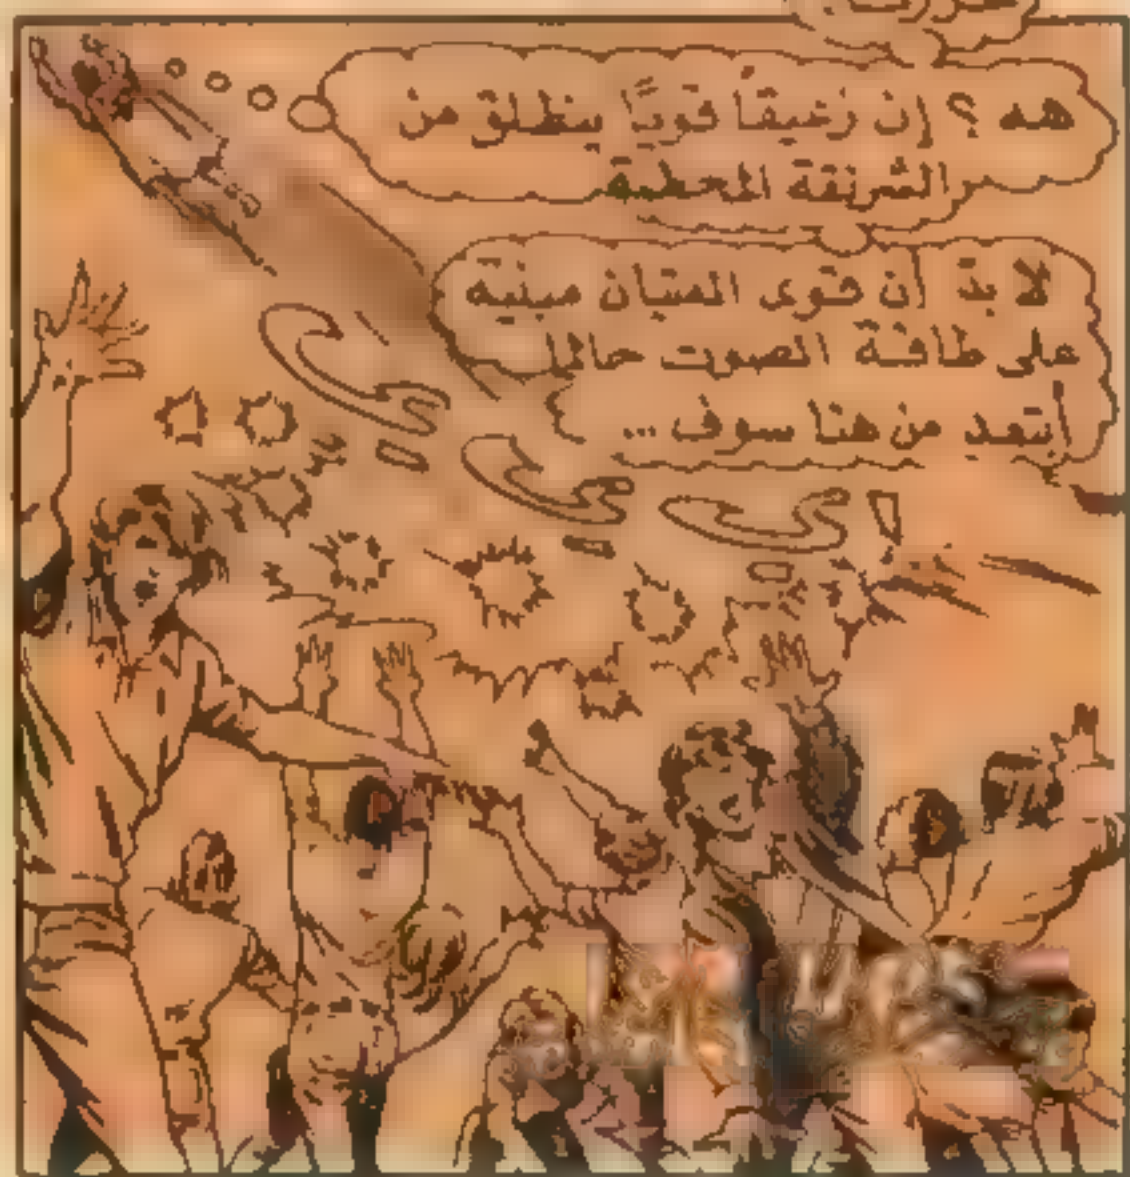 هه ؟ إن زعيقاً قويّاً ينطلق من
الشرنقة المحطمة
لا بدّ أن قوى الفتيان مبنية
على طاقة الصوت حالما
أبتعد من هنا سوف ...